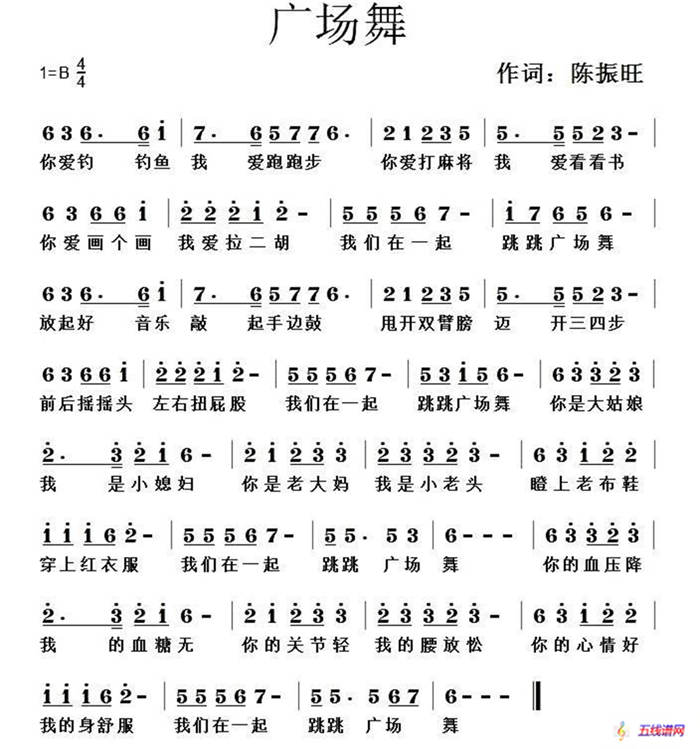 广场舞
1=B 4/4 作词：陈振旺
6 3 6· 6 i | 7· 6 5 7 7 6· | 2 1 2 3 5 | 5· 5 5 2 3 - |
你爱钓 钓鱼 我 爱跑跑步 你爱打麻将 我 爱看看书
6 3 6 6 6 i | 2 2 2 i 2 - | 5 5 5 6 7 - | i 7 6 5 6 - |
你爱画个画 我爱拉二胡 我们在一起 跳跳广场舞
6 3 6· 6 i | 7· 6 5 7 7 6· | 2 1 2 3 5 | 5· 5 5 2 3 - |
放起好 音乐 敲 起手边鼓 甩开双臂膀 迈 开三四步
6 3 6 6 6 i | 2 2 2 i 2 - | 5 5 5 6 7 - | 5 3 i 5 6 - | 6 3 3 2 3 |
前后摇摇头 左右扭屁股 我们在一起 跳跳广场舞 你是大姑娘
2· 3 2 i 6 - | 2 i 2 3 3 | 2 3 3 2 i | 2 3 2 1 2 |
我 是小媳妇 你是老大妈 我是小老头 瞪上老布鞋
i i i 6 2 - | 5 5 5 6 7 - | 5 5· 5 3 | 6 - - - | 6 3 3 2 3 |
穿上红衣服 我们在一起 跳跳 广场 舞 你的血压降
2· 3 2 i 6 | 2 i 2 3 3 | 2 3 3 2 i | 2 3 2 1 2 |
我 的血糖无 你的关节轻 我的腰放松 你的心情好
i i i 6 2 - | 5 5 5 6 7 - | 5 5· 5 6 7 | 6 - - - ‖
我的身舒服 我们在一起 跳跳 广场 舞
五线谱网